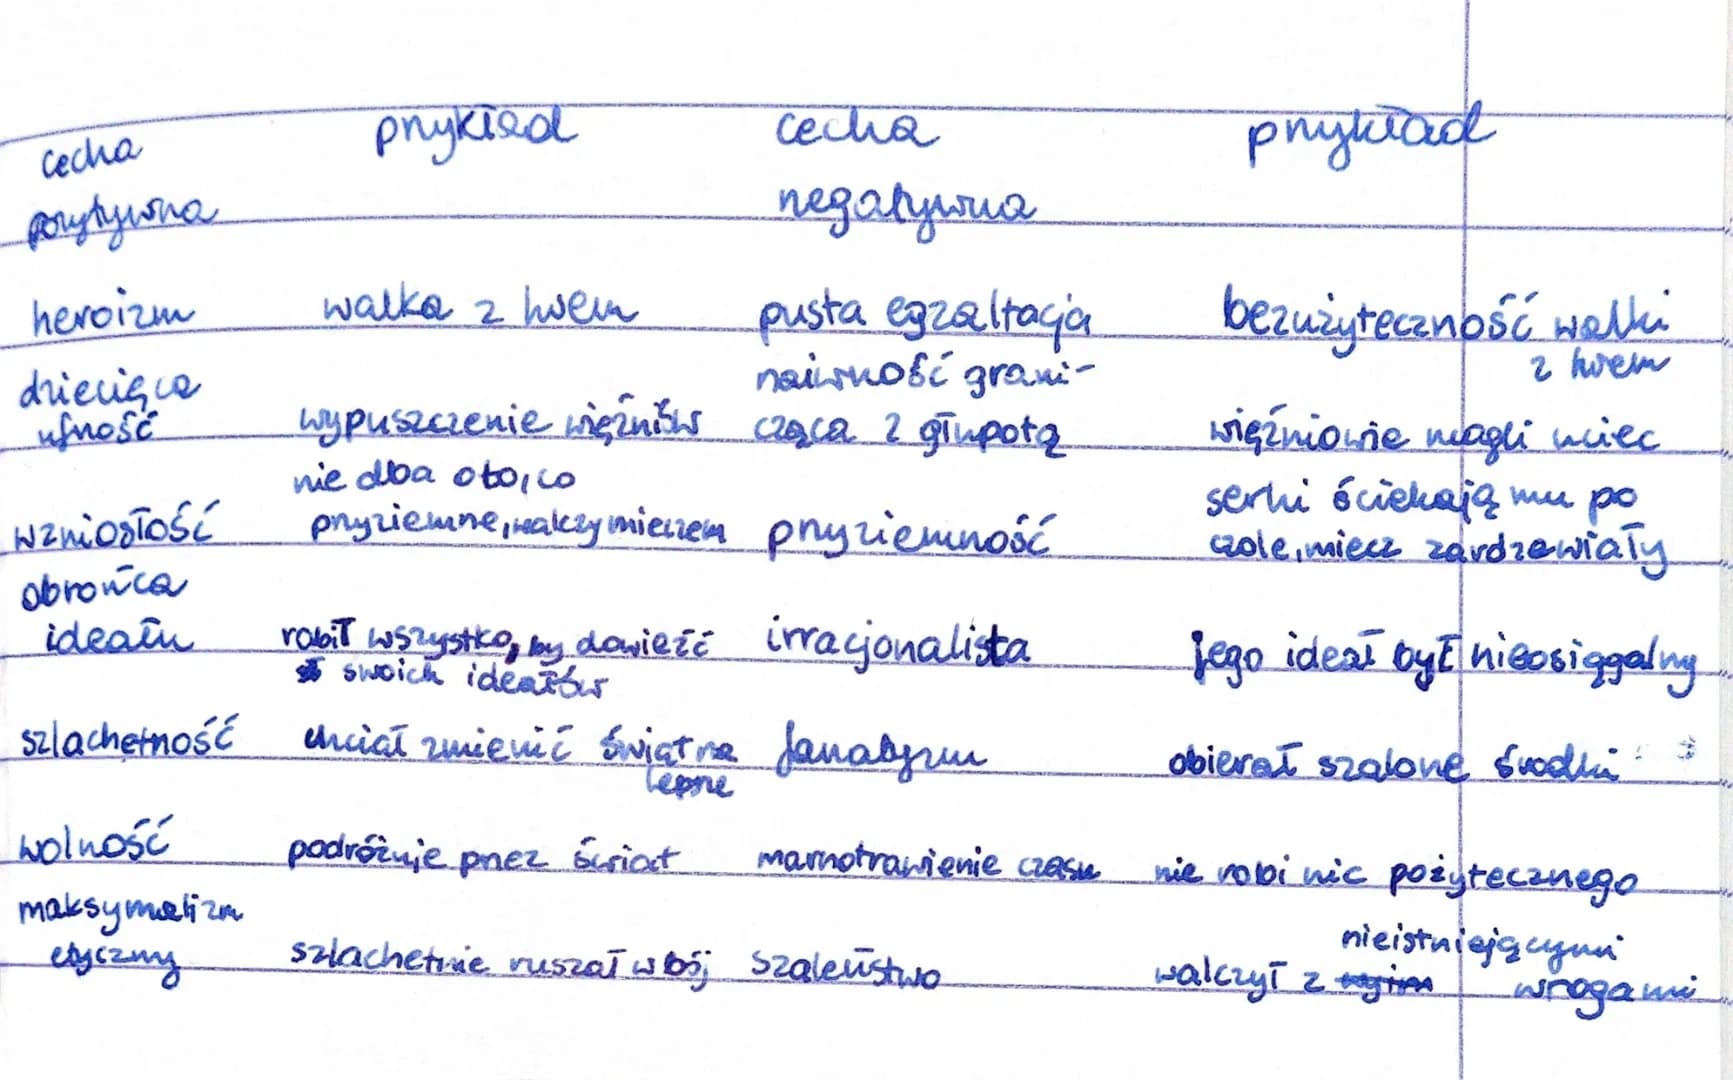 cecha przykład cecha przykład
pozytywna negatywna
heroizm walka z lwem pusta egzaltacja bezużyteczność walki
z lwem
dziecięca naiwność grani-
ufność wypuszczenie więźniów cząca z głupotą więźniowie mogli uciec
nie dba o to, co serki ściekają mu po
wzniosłość przyziemne, walczy mieczem przyziemność czole, miecz zardzewiały
obrońca
ideału robił wszystko, by dowieźć irracjonalista jego ideał był nieosiągalny
swoich ideałów
szlachetność chciał zmienić świat na fanatyzm obierał szalone środki
lepsze
wolność podróżuje przez świat marnotrawienie czasu nie robi nic pożytecznego
maksymalizm nieistniejącymi
etyczny szlachetnie ruszał w bój szaleństwo walczył z wrogami